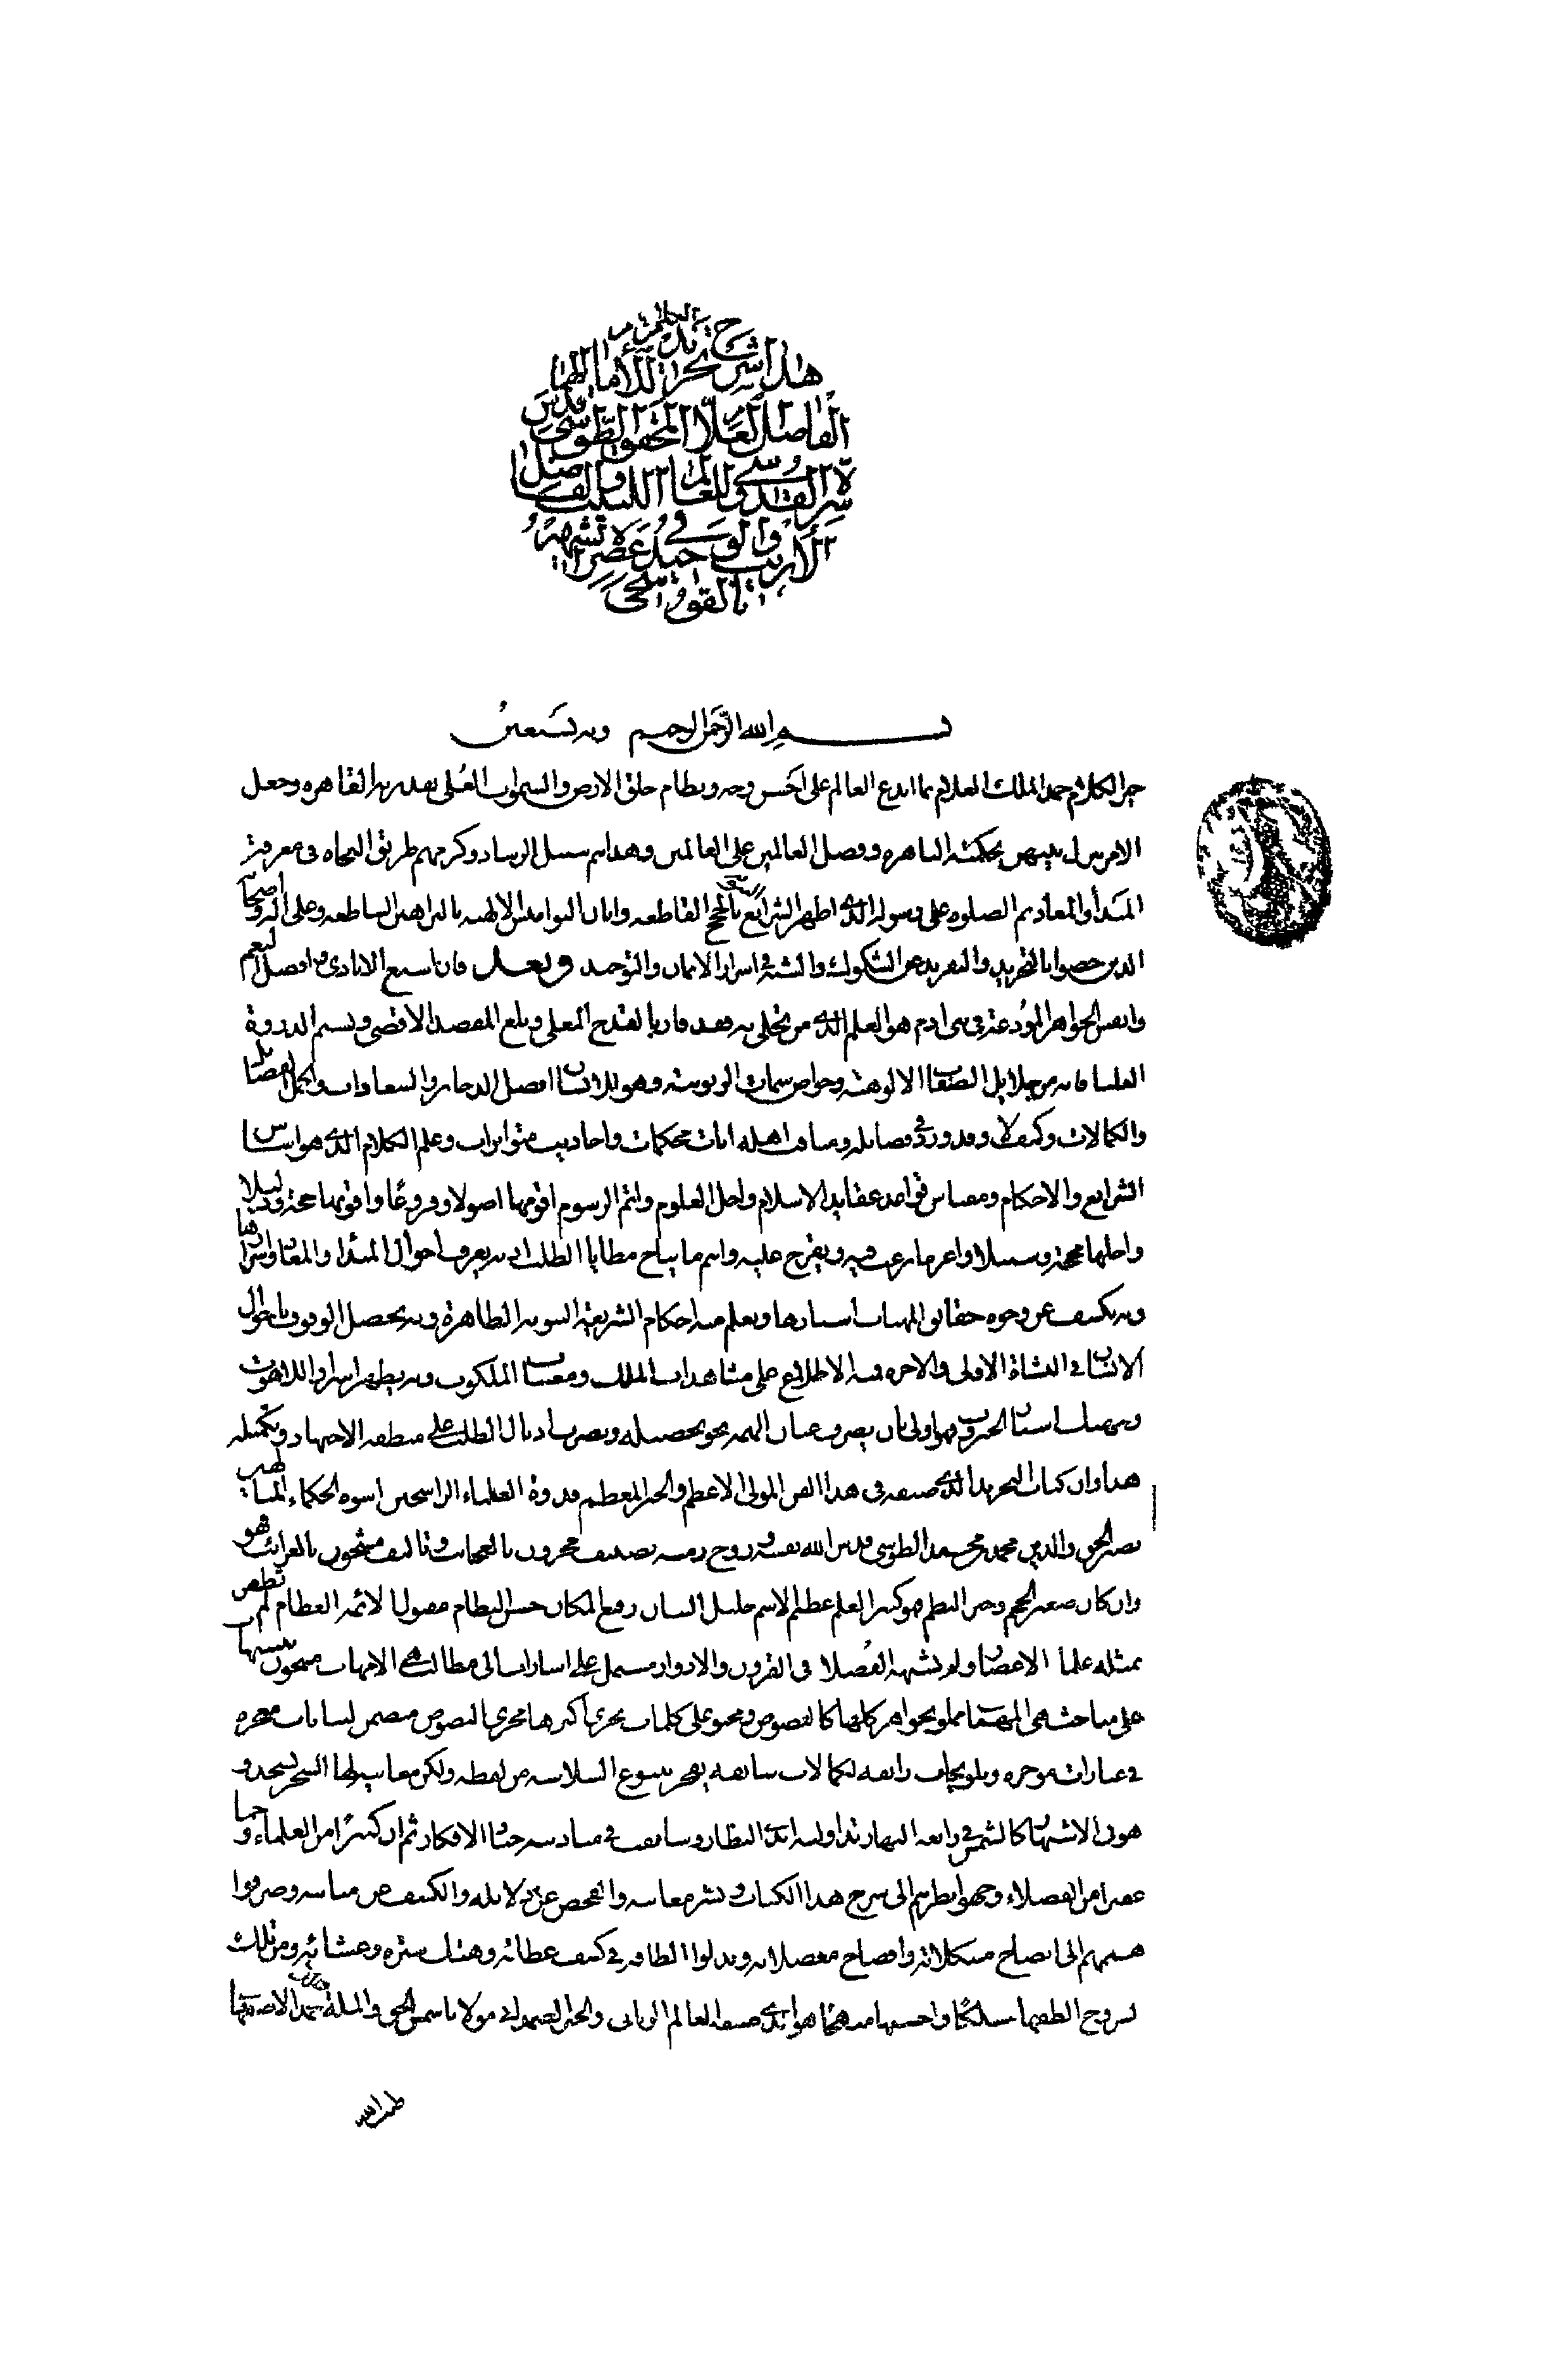 هذا شرح تجريد الكلام للامام الهمام
الفاضل العلامة المحقق الطوسي قدس
سره القدوسي للعالم اللبيب والفاضل
الاريب والوحيد في عصره لا تشهر و
بالقوشجي
بسم الله الرحمن الرحيم وبه نستعين
خير الكلام حمد الملك العلام بما ابدع العالم على احسن وجه ونظام خلق الارض والسموات العلى بقدرته القاهره وجعل
الامر بينهن بحكمته الباهره وفضل العالمين على العالمين وهداهم سبيل الرشاد وكرمهم طريق النجاه في معرفة
المبدأ والمعاد ثم الصلوه على رسوله الذي اظهر الشرايع بالحجج القاطعه وابان النواميس الالهيه بالبراهين الساطعه وعلى اله واصحابه
الذين خصوا بالتجريد والتفريد عن الشكوك والشبه في اسرار الايمان والتوحيد وبعد فان اسبغ الايادي وافضل النعم
وانفس الجواهر المودعة في بني ادم هو العلم الذي من تحلى به فقد فاز بالقدح المعلى وبلغ المقصد الاقصى وتسنم الذروة
العليا فانه من جلايل الصفات الالوهيه وخواص سمات الربوبيته وهو للانسان افضل الذخاير والسعادات واجمل الفضايل
والكمالات وكيف لا وقد ورد في فضايله ومناقب اهله ايات محكمات واحاديث متواترات وعلم الكلام الذي هو اساس
الشرايع والاحكام ومقياس قواعد عقايد الاسلام واجل العلوم واتم الرسوم اقومها اصولا وفروعا واقوىها حجة ودليلا
واجلها محجة وسبيلا واعز ما يرغب فيه ويعرج عليه واهم ما يناخ مطايا الطلب لديه به يعرف احوال المبدا والمعاد واسرارها
وبه يكشف عن وجوه حقايق الهيات استارها ويعلم منه احكام الشريعة النبويه الطاهرة وبه يحصل الوقوف باحوال
الانسان في النشاة الاولى والاخره وبه الاطلاع على مشاهدات الملك ومغيبات الملكوت وبه يظهر اسرار اللاهوت
استار الجبروت فهو اولى بان يصرف عنان الهمه نحو تحصيله ويضرب اذيال الطلب على منطقه الاجتهاد وتكميله
هذا وان كتاب التجريد الذي صنفه في هذا الفن المولى الاعظم والحبر المعظم قدوة العلماء الراسخين اسوه الحكماء المتالهين
نصير الحق والدين محمد بن محمد الطوسي قدس الله نفسه وروح رمسه تصنيف مخزون بالعجايب وتاليف مشحون بالغرائب هو
وان كان صغير الحجم وجيز النظم فهو كثير العلم عظيم الاسم جليل البيان رفيع المكان حسن النظام مقبول الائمه العظام لم تظفر
بمثله علما الاعصار ولم يشبهه الفضلا في القرون والادوار مشتمل على اشارات الى مطالب هي الامهات مشحون بتنبيهات
على مباحث هي المهمات مملو بجواهر كلها كالفصوص ومحتو على كلمات يجري اكثرها مجرى النصوص متضمن لبيانات معجزه
في عبارات موجزه وتلويحات رائقه لكمالات سابقه يفجر ينبوع السلاسه من لفظه ولكن معانيه لها السحر يسجد و
هو في الاشتهار كالشمس في رابعه النهار تداوله ايدي النظار وسابقت في ميادينه جياد الافكار ثم ان كثيرا من العلماء وجما
غفيرا من الفضلاء وجهوا نظرهم الى شرح هذا الكتاب ونشر معانيه والفحص عن دلايله والكشف عن مبانيه وصرفوا
هممهم الى ايضاح مشكلاته وافصاح معضلاته وبذلوا الطاقه في كشف غطائه وهتك ستره وغشائه ومن تلك
الشروح الطفها مسلكا واحسنها منهجا هو الذي صنفه العالم الرباني والحبر الصمداني مولانا شمس الحق والملة محمد الاصفهاني
طيب الله